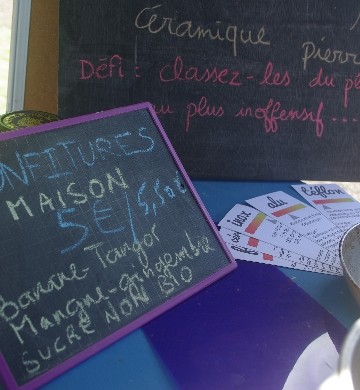 Céramique pierr
Défi : classez-les du p
au plus inoffensif...
ONFITURES
MAISON
5€/5,50€
Banane-Tangor
Mangue-gingembre
SUCRE NON BIO
inox
alu
téflon